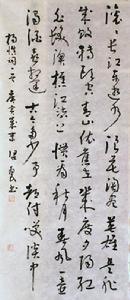 滚滚长江东逝水浪花淘尽英雄是非
成败转头空青山依旧在几度夕阳红
白发渔樵江渚上惯看秋月春风一壶
浊酒喜相逢古今多少事都付笑谈中
杨慎词一首